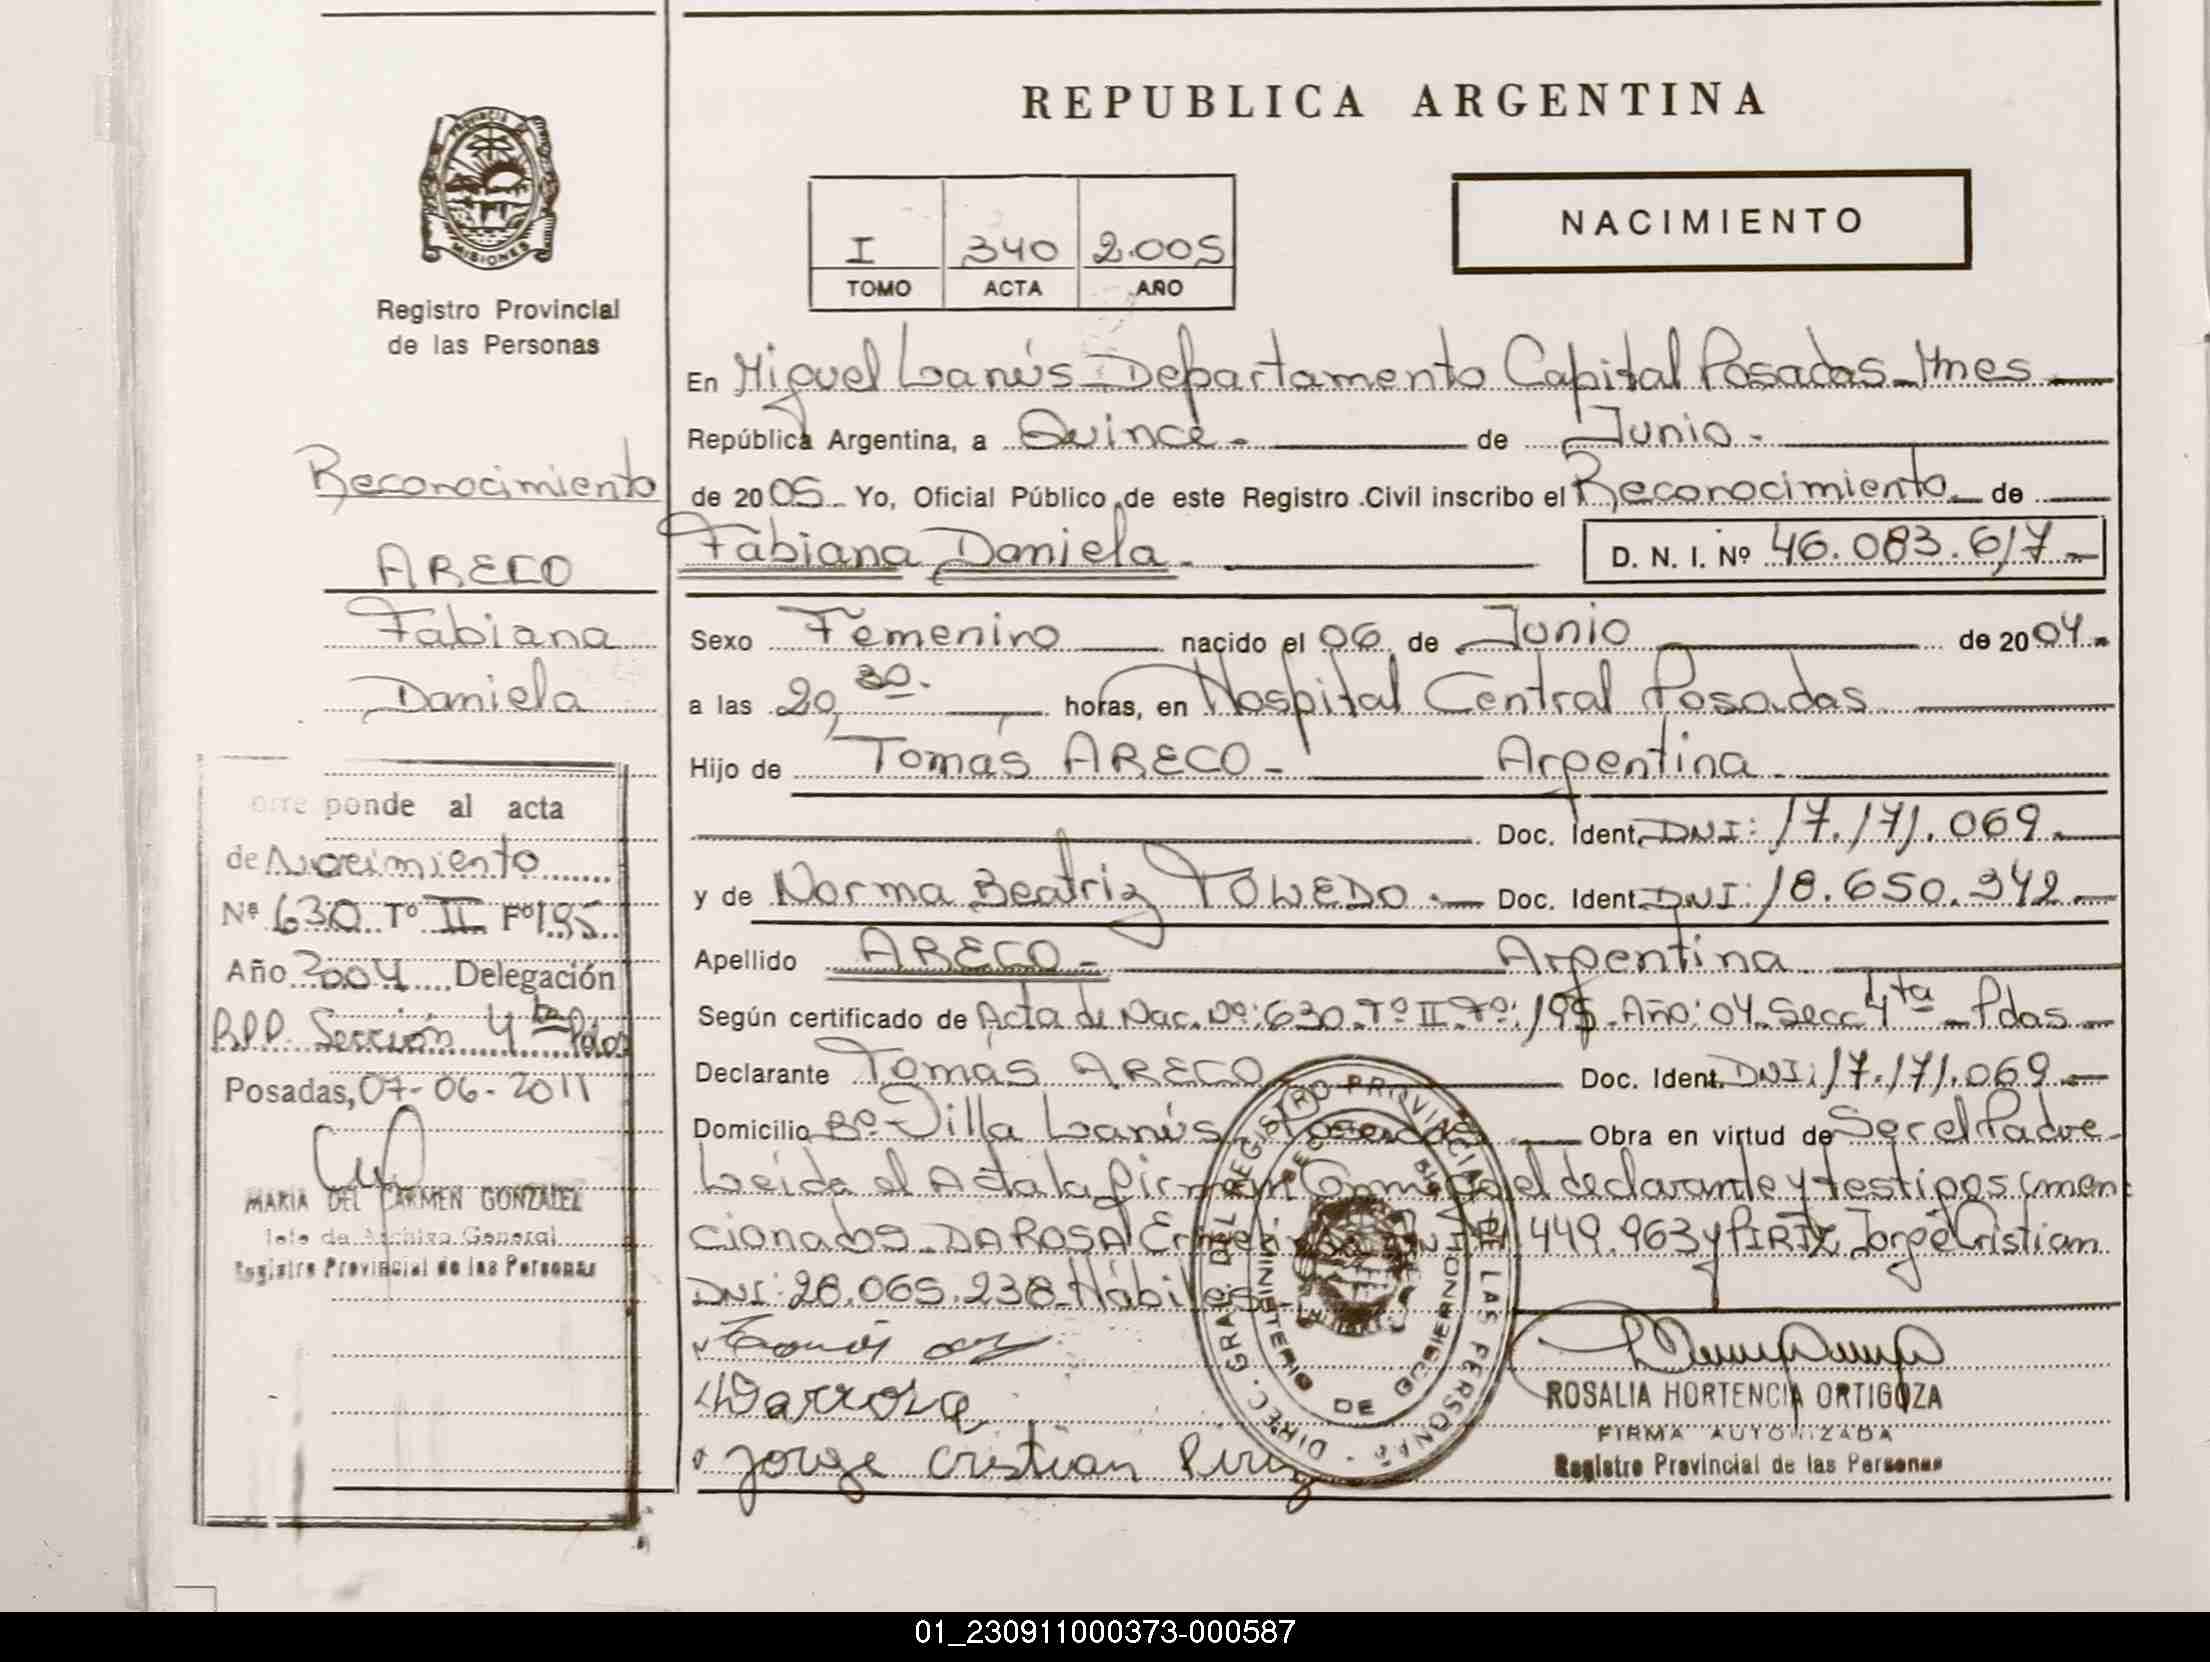 REPUBLICA ARGENTINA
PROVINCIA DE
MISIONES
Registro Provincial
de las Personas
NACIMIENTO
I 340 2.005
TOMO ACTA AÑO
En Miguel Lanús - Departamento Capital Posadas - Mnes
República Argentina, a Quince - de Junio -
de 2005 - Yo, Oficial Público de este Registro Civil inscribo el Reconocimiento de
Fabiana Daniela - D. N. I. Nº 46.083.617 -
Sexo Femenino nacido el 06 de Junio de 2004 -
a las 20,30 - horas, en Hospital Central Posadas
Hijo de Tomás ARECO - Argentina -
Doc. Ident. DNI: 17.171.069 -
y de Norma Beatriz TOLLEDO - Doc. Ident. DNI: 18.650.342 -
Apellido ARECO - Argentina
Según certificado de Acta de Nac. Nº: 630. Tº II. Fº: 195 - Año: 04. Secc 4ta - Pdas -
Declarante Tomás ARECO Doc. Ident. DNI: 17.171.069 -
Domicilio Bº Villa Lanús - Posadas - Obra en virtud de Ser el Padre -
Leída el Acta la firman Conmigo el declarante y testigos (men
cionados DA ROSA 449.963 y PIRIZ Jorge Cristian
DNI: 28.065.238 - Hábiles -
Tomás
Darrosa
Jorge Cristian Piriz
DIREC. GRAL. DEL REGISTRO PROVINCIAL DE LAS PERSONAS
MINISTERIO DE GOBIERNO
ROSALIA HORTENCIA ORTIGOZA
FIRMA AUTORIZADA
Registro Provincial de las Personas
Reconocimiento
ARECO
Fabiana
Daniela
orre ponde al acta
de Nacimiento
Nº 630 Tº II Fº 195
Año 2004 Delegación
R.P.P. Sección 4ta Pdas
Posadas, 07-06-2011
MARIA DEL CARMEN GONZALEZ
Jefe de Archivo General
Registro Provincial de las Personas
01_230911000373-000587